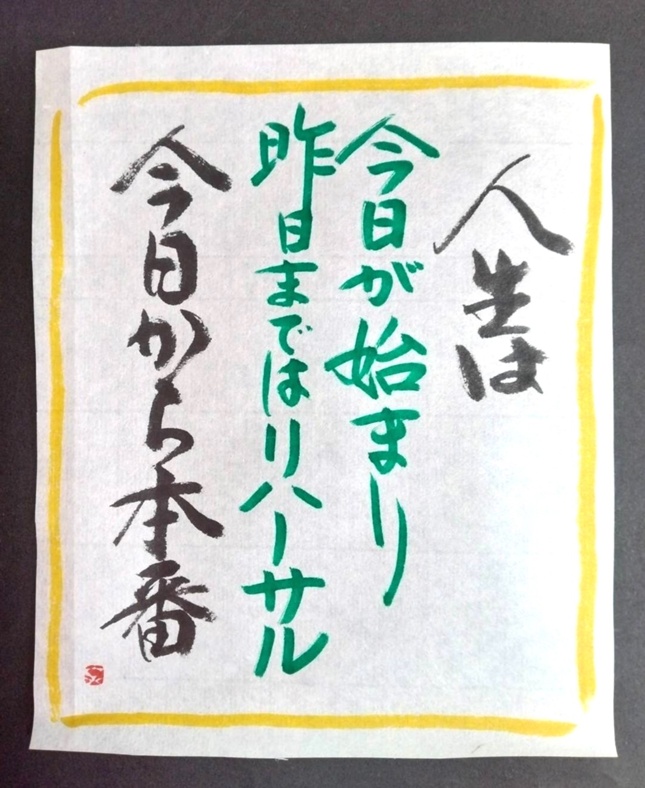 人生は
今日が始まり
昨日まではリハーサル
今日から本番